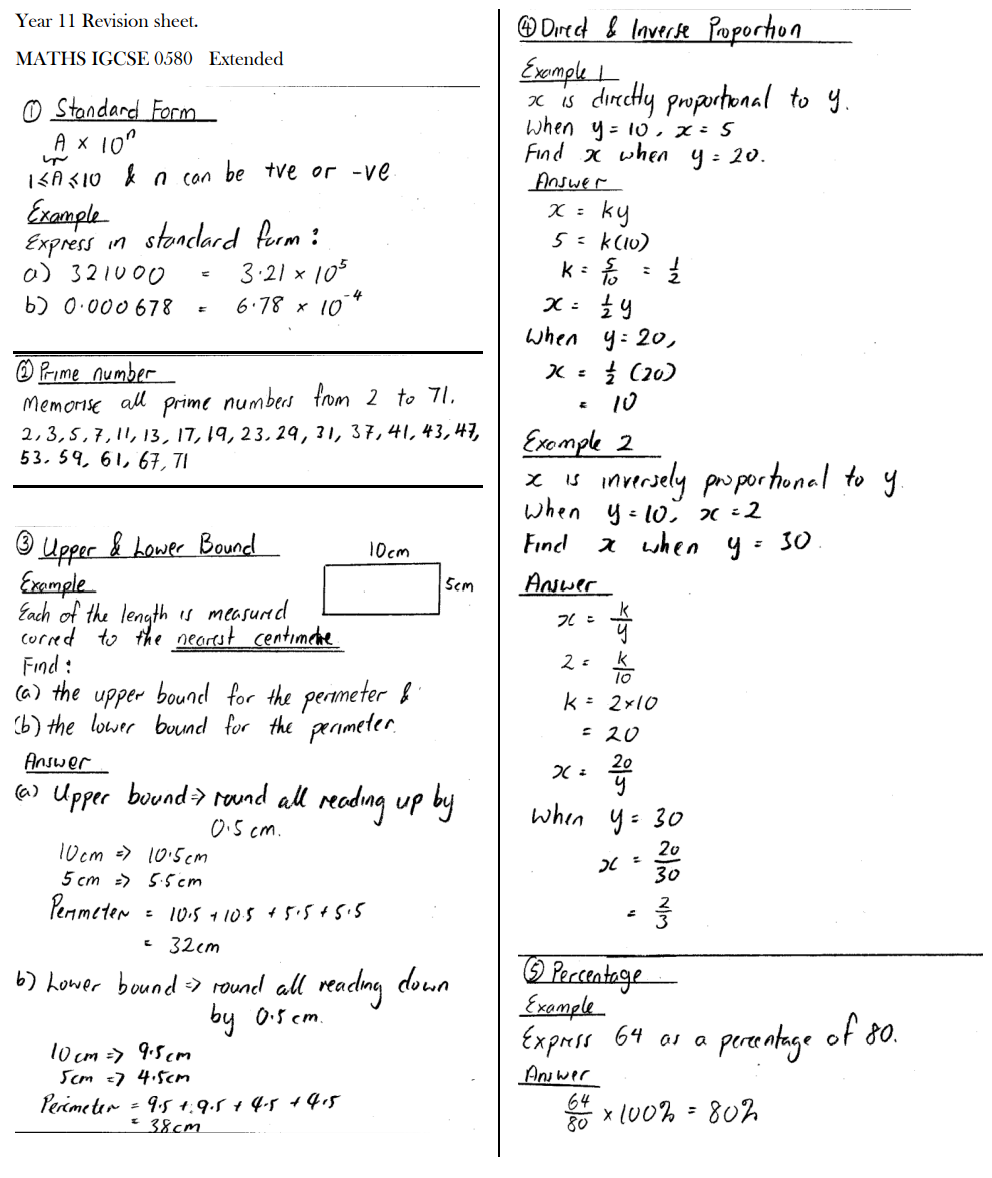 Year 11 Revision sheet.
MATHS IGCSE 0580 Extended
① Standard Form
A × 10ⁿ
1≤A≤10 & n can be +ve or -ve
Example
Express in standard form :
a) 321000 = 3·21 × 10⁵
b) 0·000678 = 6·78 × 10⁻⁴
② Prime number
Memorise all prime numbers from 2 to 71.
2, 3, 5, 7, 11, 13, 17, 19, 23, 29, 31, 37, 41, 43, 47,
53, 59, 61, 67, 71
③ Upper & Lower Bound
10cm
5cm
Example
Each of the length is measured
correct to the nearest centimetre
Find :
(a) the upper bound for the perimeter &
(b) the lower bound for the perimeter.
Answer
(a) Upper bound ⇒ round all reading up by
0·5 cm.
10cm ⇒ 10·5cm
5cm ⇒ 5·5cm
Perimeter = 10·5 + 10·5 + 5·5 + 5·5
= 32cm
b) Lower bound ⇒ round all reading down
by 0·5 cm.
10cm ⇒ 9·5cm
5cm ⇒ 4·5cm
Perimeter = 9·5 + 9·5 + 4·5 + 4·5
= 38cm
④ Direct & Inverse Proportion
Example 1
x is directly proportional to y.
When y = 10, x = 5
Find x when y = 20.
Answer
x = ky
5 = k(10)
k = 5/10 = 1/2
x = 1/2 y
When y = 20,
x = 1/2 (20)
= 10
Example 2
x is inversely proportional to y.
When y = 10, x = 2
Find x when y = 30.
Answer
x = k/y
2 = k/10
k = 2×10
= 20
x = 20/y
When y = 30
x = 20/30
= 2/3
⑤ Percentage
Example
Express 64 as a percentage of 80.
Answer
64/80 × 100% = 80%